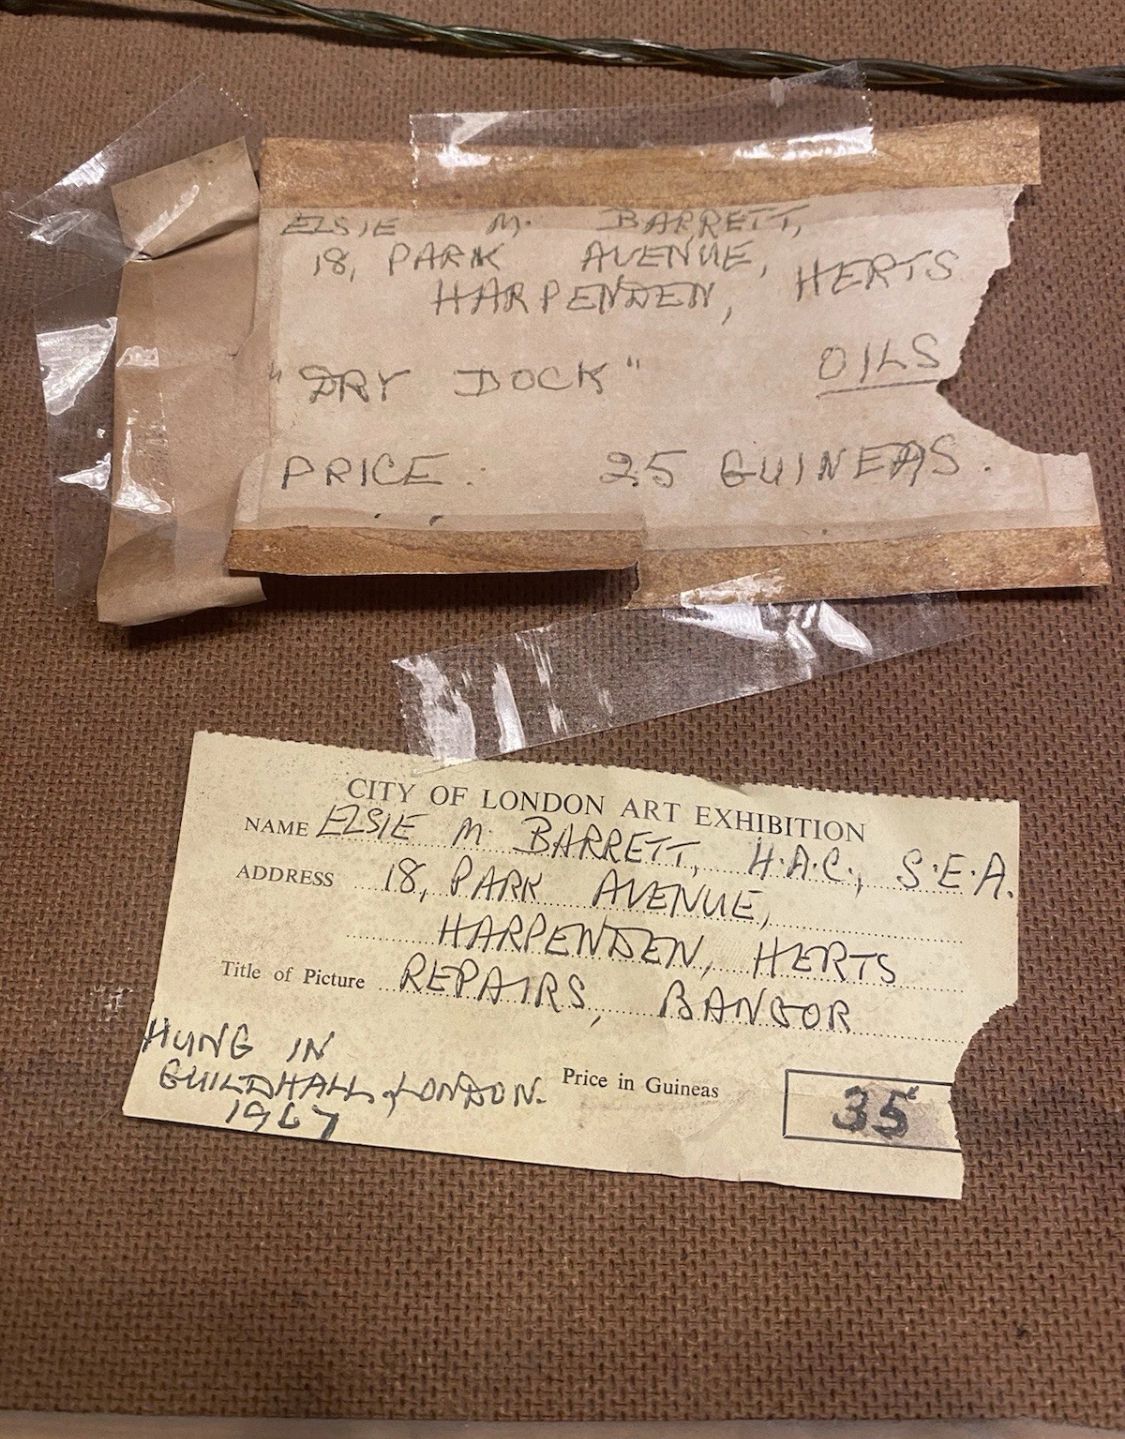 ELSIE M. BARRETT,
18, PARK AVENUE,
HARPENDEN, HERTS
"DRY DOCK" OILS
PRICE: 25 GUINEAS.
CITY OF LONDON ART EXHIBITION
NAME ELSIE M. BARRETT, H.A.C., S.E.A.
ADDRESS 18, PARK AVENUE,
HARPENDEN, HERTS
Title of Picture REPAIRS, BANGOR
HUNG IN
GUILDHALL, LONDON.
1967
Price in Guineas 35